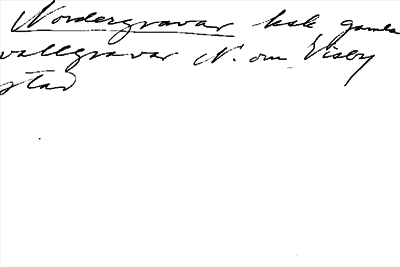 Nordergravar hsk, gamla
vallgravar N. om Visby
stad